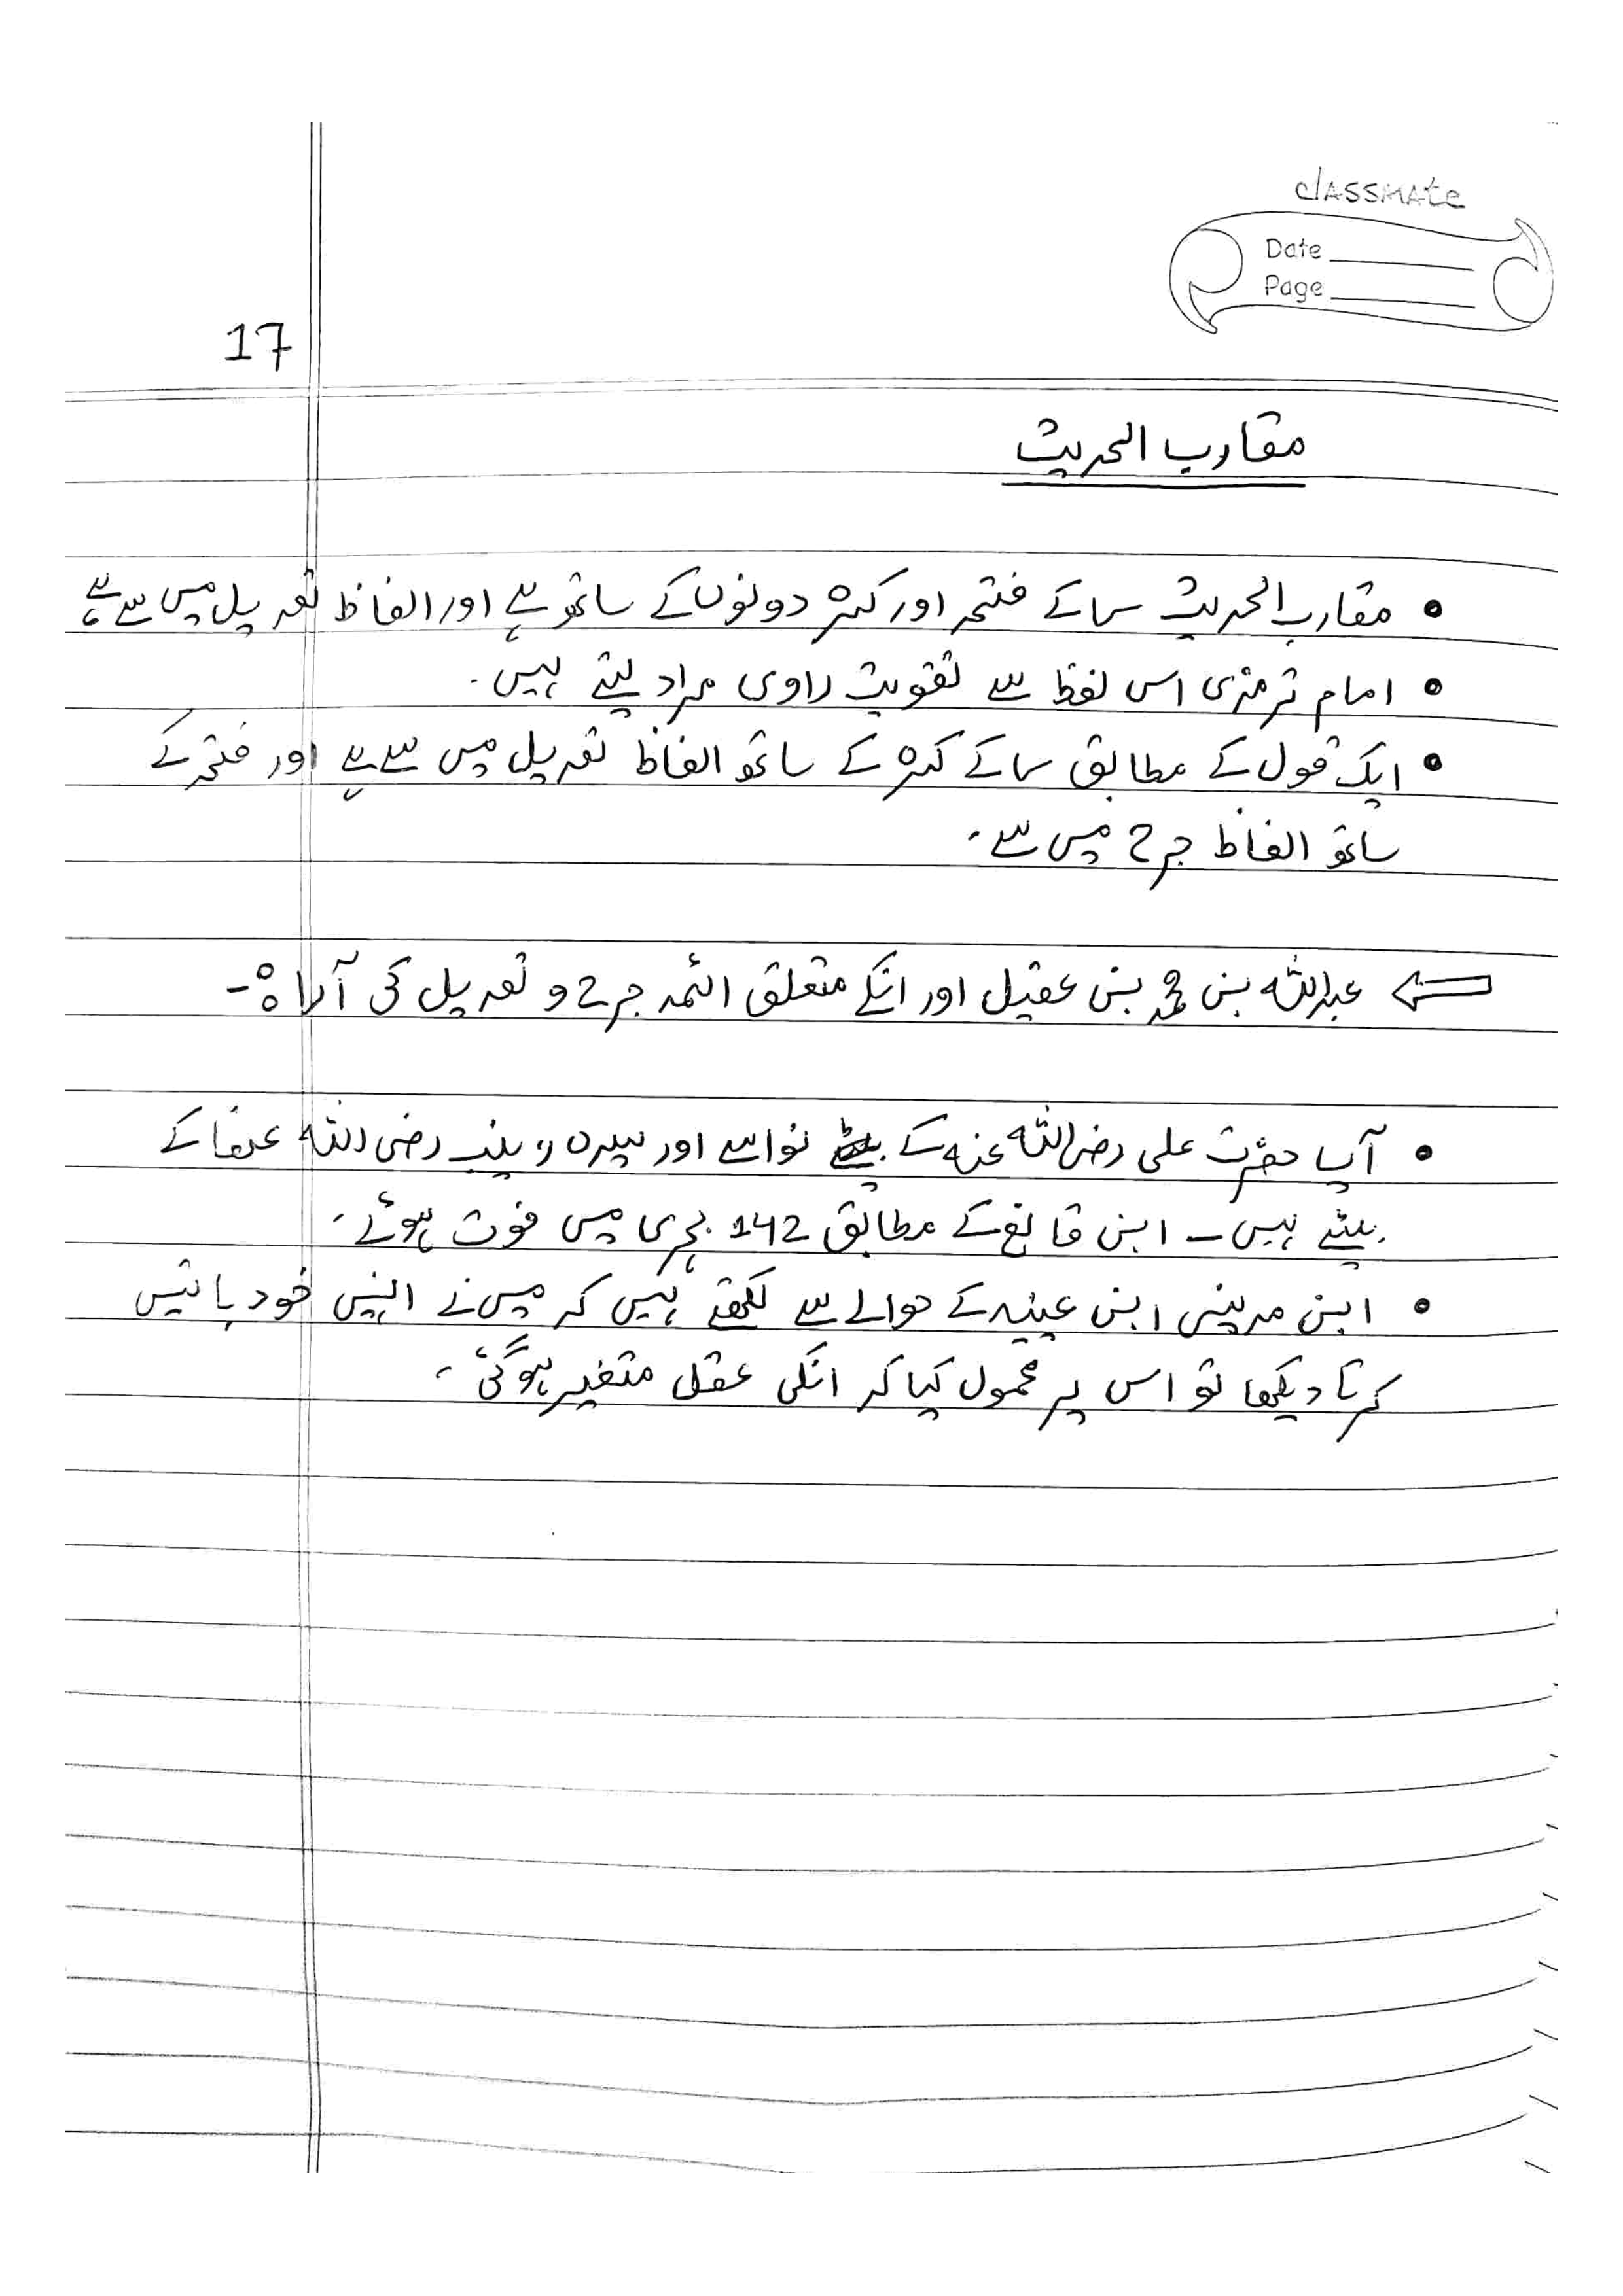 classmate
Date
Page
17
مقارب الحدیث
• مقارب الحدیث راء کے فتحہ اور کسرہ دونوں کے ساتھ ہے اور الفاظ تعدیل میں سے ہے
• امام ترمذی اس لفظ سے تقویت راوی مراد لیتے ہیں۔
• ایک قول کے مطابق راء کے کسرہ کے ساتھ الفاظ تعدیل میں سے ہے اور فتحہ کے
ساتھ الفاظ جرح میں سے۔
عبداللہ بن محمد بن عقیل اور انکے متعلق ائمہ جرح و تعدیل کی آراء :-
• آپ حضرت علی رضی اللہ عنہ کے نواسے اور سیدہ زینب رضی اللہ عنھا کے
بیٹے ہیں ۔ ابن قانع کے مطابق 142 ہجری میں فوت ہوئے۔
• ابن مدینی ابن عیینہ کے حوالے سے لکھتے ہیں کہ میں نے انہیں خود باتیں
کرتا دیکھا تو اس پر محمول کیا کہ انکی عقل متغیر ہوگئی۔